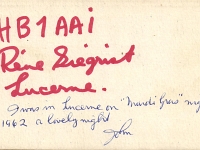 HB1AAi
Réné Siegrist
Lucerne.
I was in Lucerne on "Mardi Gras" night
1962 a lovely night
John